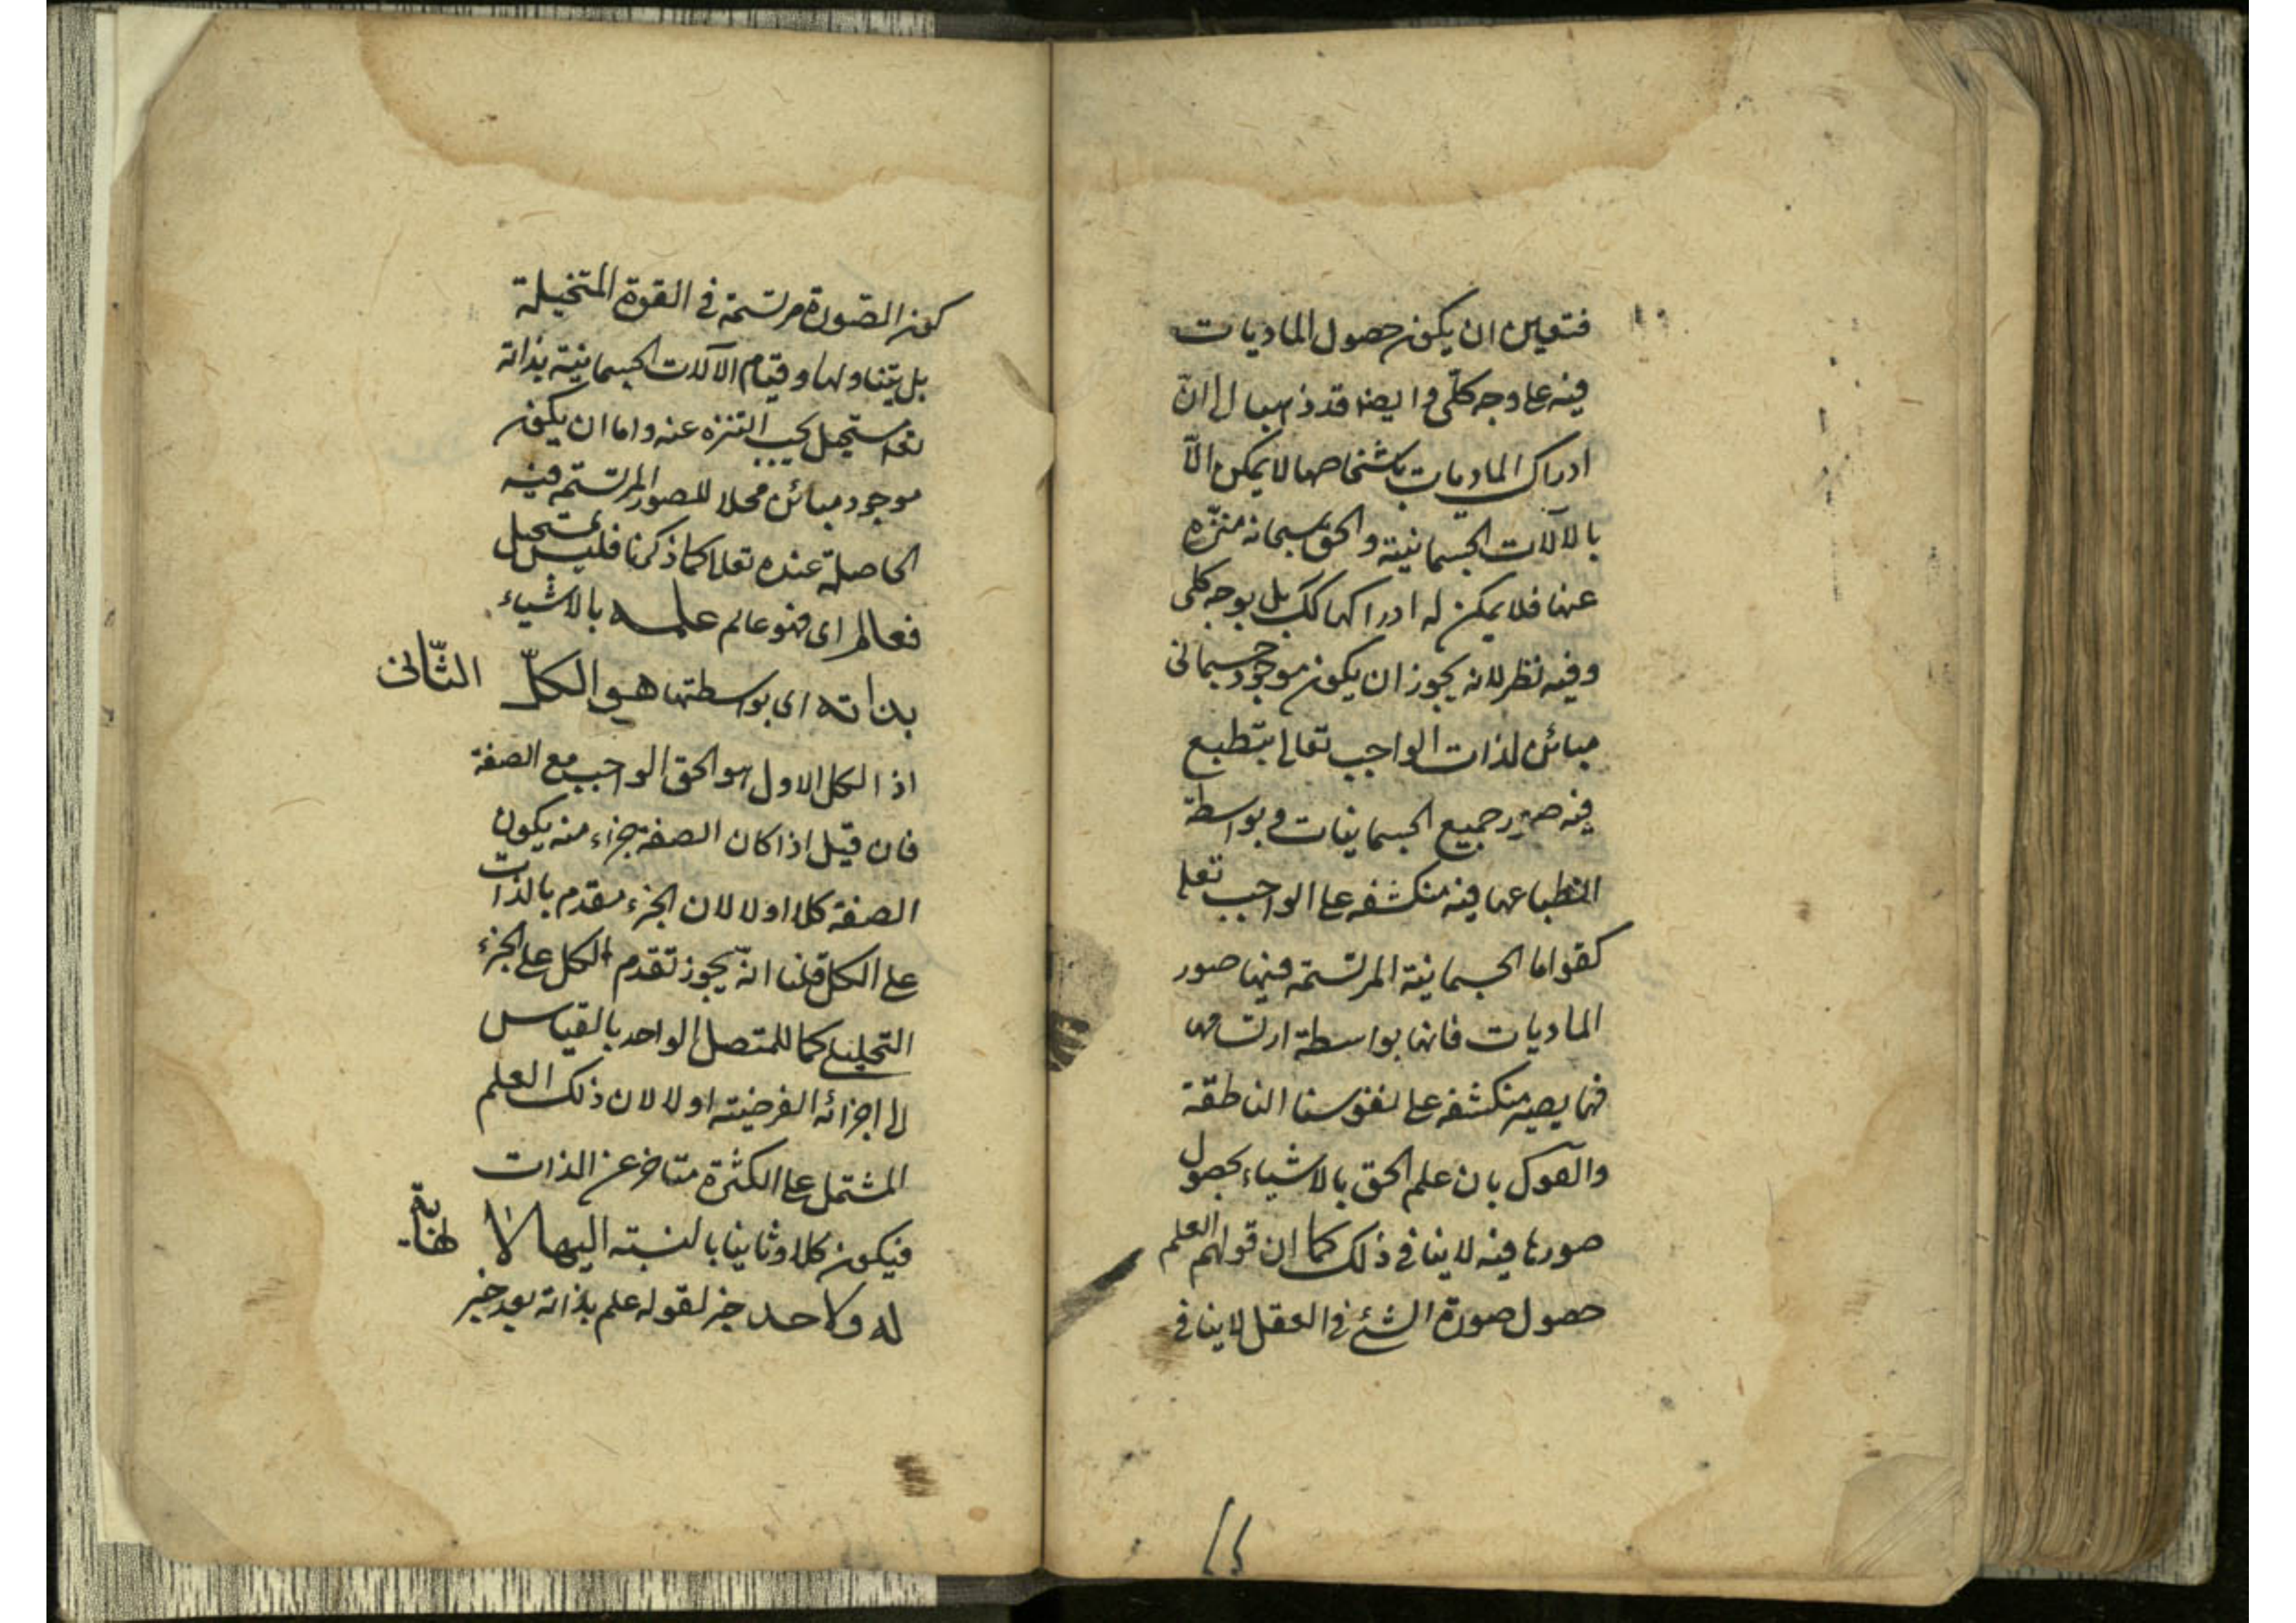 فتعين ان يكون حصول الماديات
فيه على وجه كلى وايضا قد ذهبا الى ان
ادراك الماديات باشخاصها لا يمكن الّا
بالآلات الجسمانية والحق سبحانه منزّه
عنها فلا يمكن له ادراكها كك بل بوجه كلى
وفيه نظر لانه يجوز ان يكون موجود جسمانى
مبائن لذات الواجب تعالى ينطبع
فيه صور جميع الجسمانيات وبواسطة
انطباعها فيه منكشفه على الواجب تعلى
كقوانا الجسمانية المرتسمة فيها صور
الماديات فانها بواسطة ارتسامها
فيها يصير منكشفه على نفوسنا الناطقة
والقول بان علم الحق بالاشياء بحصول
صورها فيه لا ينافى ذلك كما ان قولهم العلم
حصول صورة الشئ فى العقل لا ينافى
كون الصّورة مرتسمة فى القوة المتخيلة
بل يتناولها وقيام الآلات الجسمانية بذاته
تعالى مستحيل يجب التنزه عنه واما ان يكون
موجود مبائن محلا للصور المرتسمة فيه
الحاصلة عنده تعلى كما ذكرنا فليس بمستحيل
فعالم اى فهو عالم علمه بالاشياء
بذاته اى بواسطتها هو الكلّ الثّانى
اذ الكل الاول هو الحق الواجب مع الصفة
فان قيل اذا كان الصفة جزء منه يكون
الصفة كلا اولا لان الجزء مقدم بالذات
على الكل قلنا انّه يجوز تقدم الكل على الجزء
التحليلى كما للمتصل الواحد بالقياس
الى اجزائه الفرضية اولا لان ذلك العلم
المشتمل على الكثرة متاخر عن الذات
فيكون كلا وثانيا بالنسبة اليها لا نهاية
له ولا حد خبر لقوله علم بذاته بعد خبر